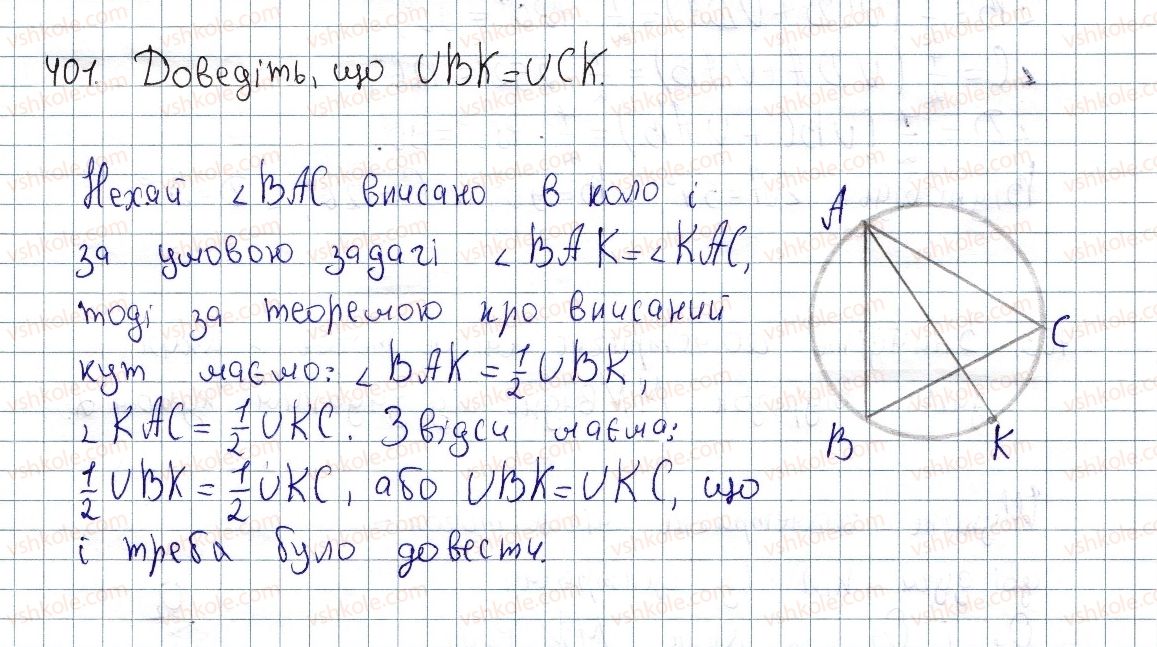 401. Доведіть, що ∪BK=∪CK.
Нехай ∠BAC вписано в коло і
за умовою задачі ∠BAK=∠KAC,
тоді за теоремою про вписаний
кут маємо: ∠BAK = 1/2 ∪BK;
∠KAC = 1/2 ∪KC. Звідси маємо:
1/2 ∪BK = 1/2 ∪KC, або ∪BK=∪KC, що
і треба було довести.
A
C
B
K
vshkole.com